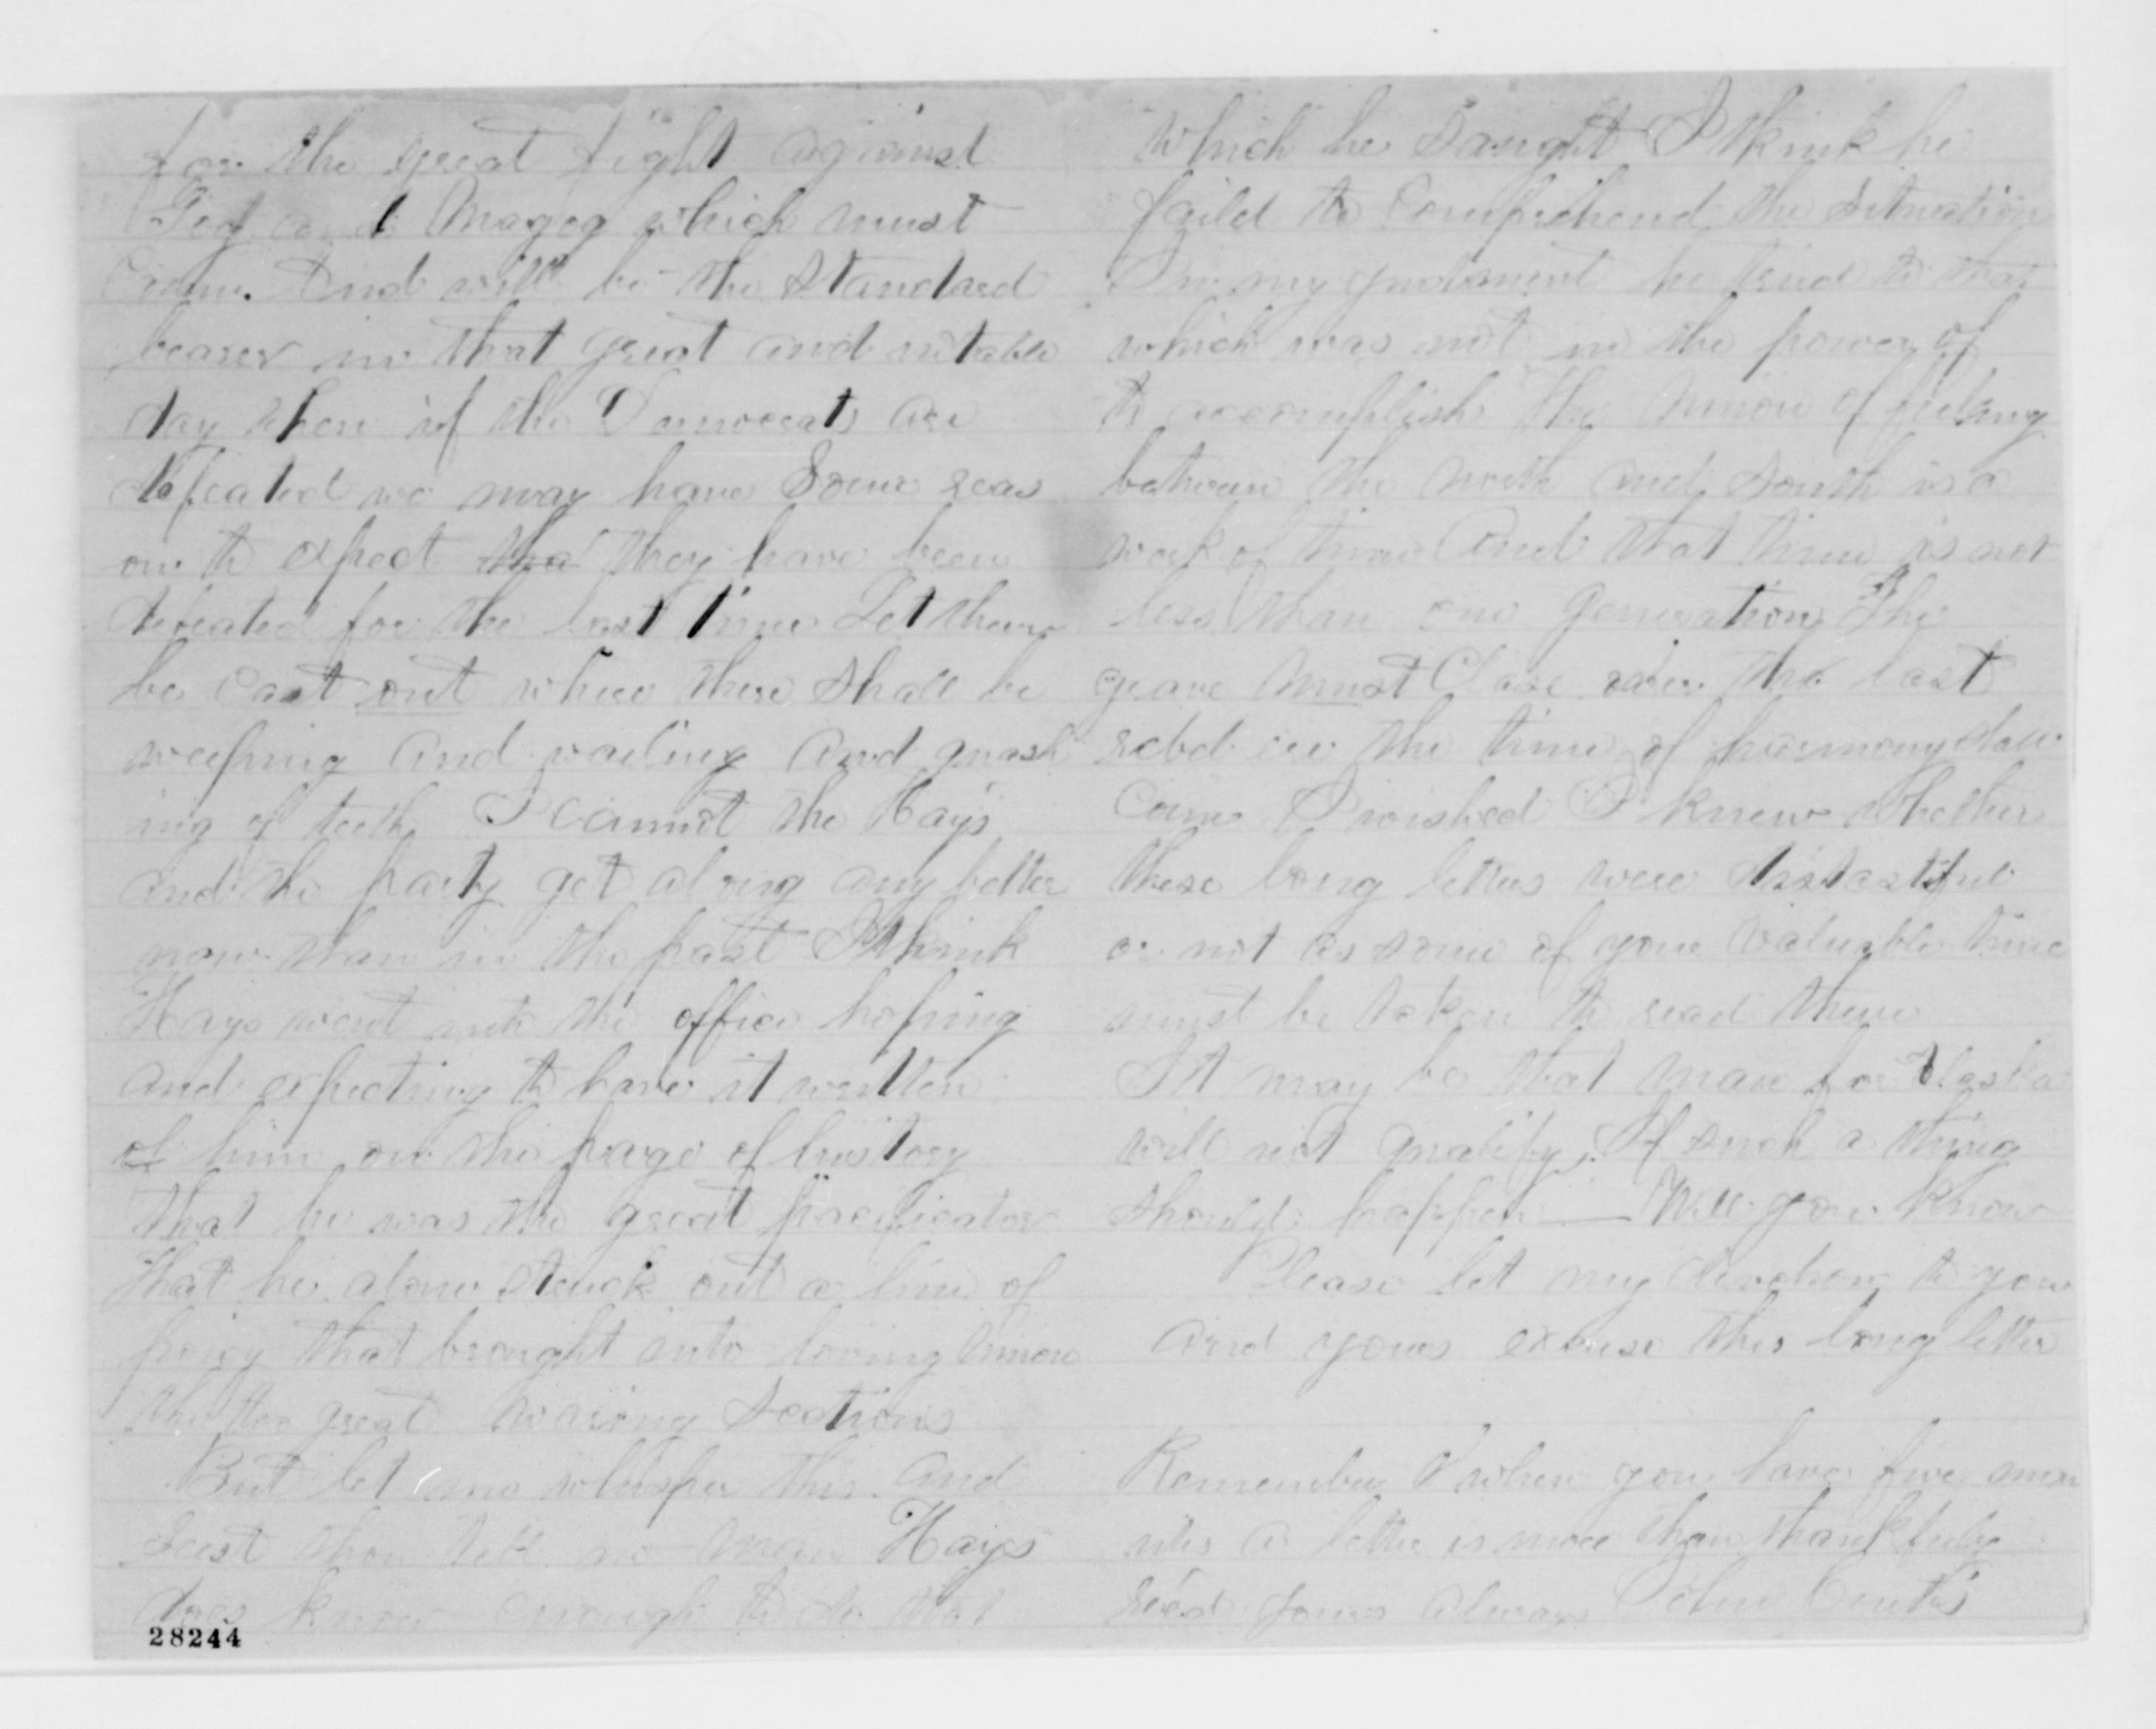 for the great fight against
Gog and Magog which must
Come. And will be the Standard
bearer in that great and notable
day when if the Democrats are
defeated we may have Some reas
on to expect tha they have been
defeated for the last time Let them
be Cast out where there Shall be
weeping and wailing and gnash
ing of teeth I cannot the Hays
and the party get along any better
now than in the past I think
Hays went into the office hoping
and expecting to have it written
of him on the page of history
that he was the great pacificator
that he alone struck out a line of
policy that brought into loving Union
the two great waring Sections
But let me whisper this. and
Seest thou tell no man Hays
does know enough to do that
28244
which he Saught I think he
faild to Comprehend the Situation
In my judament he tried to that
which was not in the power of
to accomplish The Union of feeling
between the north and South is a
work of time And that time is not
less than one generation The
grave must Close over the last
rebel ere the time of harmony shall
Come I wished I knew whether
these long letters were distastful
or not as some of your valuable time
must be taken to read them
It may be that man for Alaska
will not qualify. If such a thing
should happen — Well you know
Please let my devotion to you
and yours excuse this long letter
Remember when you have five min
utes a letter is more than thankfuly
recd yours always John Curtis